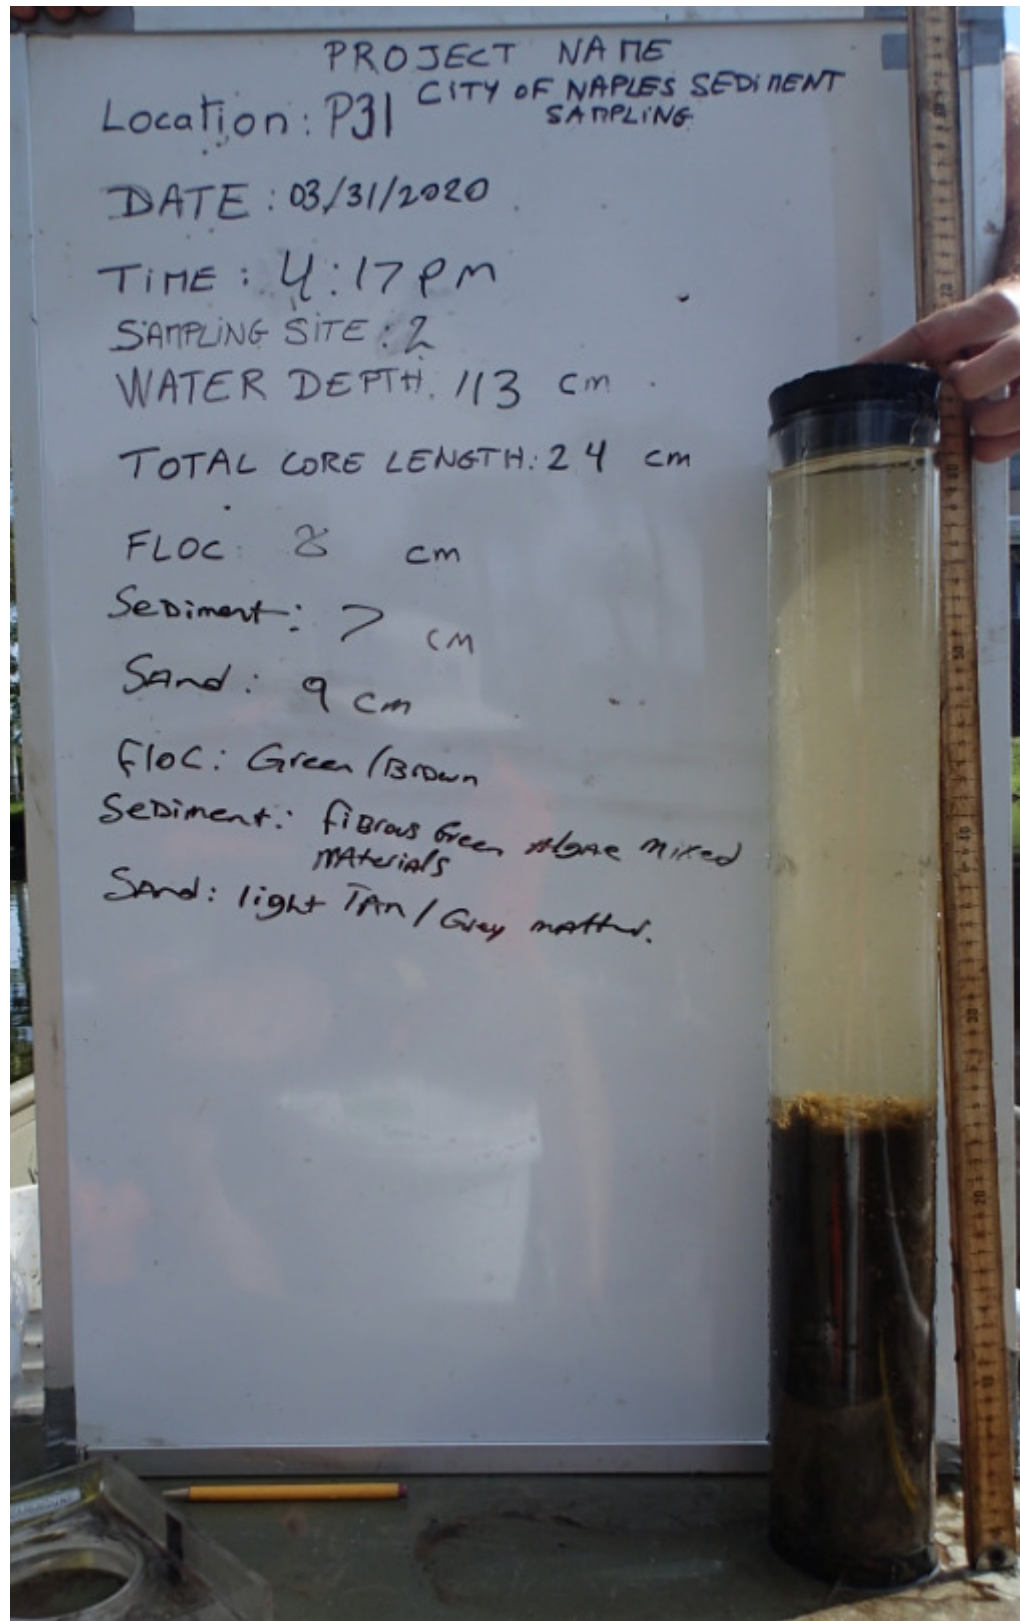 PROJECT NAME
CITY OF NAPLES SEDIMENT
SAMPLING
Location: P31
DATE: 03/31/2020
TIME: 4:17 PM
SAMPLING SITE: 2
WATER DEPTH: 113 cm
TOTAL CORE LENGTH: 24 cm
FLOC: 8 cm
Sediment: 7 cm
Sand: 9 cm
Floc: Green/Brown
Sediment: fibrous Green Algae mixed
materials
Sand: light TAN/Grey matter.
70
60
50
40
30
20
10